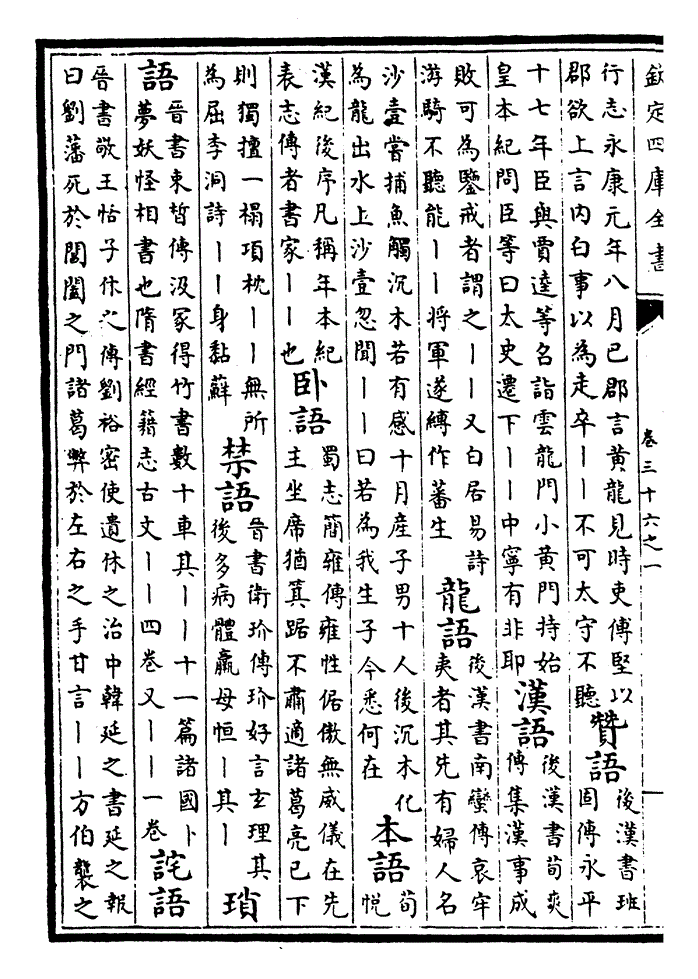 欽定四庫全書 卷三十六之一
行志永康元年八月巳郡言黃龍見時吏傅堅以
郡欲上言内白事以為走卒丨丨不可太守不聽
贊語
後漢書班
固傳永平
十七年臣與賈逵等名詣雲龍門小黃門持始
皇本紀問臣等曰太史遷下丨丨中寧有非耶
漢語
後漢書荀爽
傳集漢事成
敗可為鑒戒者謂之丨丨又白居易詩
游騎不聽能丨丨將軍遂縛作蕃生
龍語
後漢書南蠻傳哀牢
夷者其先有婦人名
沙壹嘗捕魚觸沉木若有感十月産子男十人後沉木化
為龍出水上沙壹忽聞丨丨曰若為我生子今悉何在
本語
荀
悅
漢紀後序凡稱年本紀
表志傳者書家丨丨也
卧語
蜀志簡雍傳雍性倨傲無威儀在先
主坐席猶箕踞不肅適諸葛亮已下
則獨擅一榻項枕丨丨無所
為屈李洞詩丨丨身黏蘚
禁語
晉書衛玠傳玠好言玄理其
後多病體羸母恒丨其丨
瑣
語
晉書束晳傳汲冢得竹書數十車其丨丨十一篇諸國卜
夢妖怪相書也隋書經籍志古文丨丨四卷又丨丨一卷
詫語
晉書敬王恬子休之傳劉裕密使遺休之治中韓延之書延之報
曰劉藩死於閶闔之門諸葛斃於左右之手甘言丨丨方伯襲之